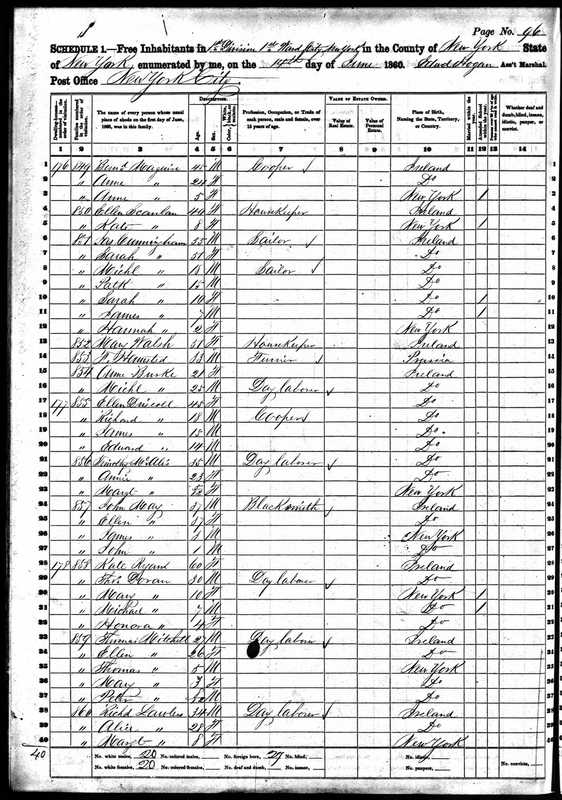 Page No. 96
SCHEDULE 1.—Free Inhabitants in 1st Division 1st Ward City New York in the County of New York State
of New York, enumerated by me, on the 14th day of June 1860. Ass't Marshal.
Post Office New York City
DESCRIPTION. VALUE OF ESTATE OWNED.
The name of every person whose usual place of abode on the first day of June, 1860, was in this family.
Age. Sex.
Profession, Occupation, or Trade of each person, male and female, over 15 years of age.
Value of Real Estate. Value of Personal Estate.
Place of Birth, Naming the State, Territory, or Country.
Whether deaf and dumb, blind, insane, idiotic, pauper, or convict.
1 2 3 4 5 6 7 8 9 10 11 12 13 14
1 176 849 Maguire 45 M Cooper Ireland
2 " Anne " 24 F Do
3 " Anne " 5 F New York 1
4 850 Ellen Scanlan 44 F Housekeeper Ireland
5 " Kate " 8 F New York 1
6 851 Jas Cunningham 55 M Sailor Ireland
7 " Sarah " 50 F Do
8 " Michl " 18 M Sailor Do
9 " Patk " 15 M Do
10 " Sarah " 10 F Do 1
11 " James " 7 M Do 1
12 " Hannah " 2 F New York
13 852 Mary Walsh 50 F Housekeeper Ireland
14 853 33 M Prussia
15 854 Anne Burke 21 F Ireland
16 " Michl " 25 M Day laborer Do
17 177 855 Ellen Driscoll 45 F Do
18 " Richard " 18 M Cooper Do
19 " James " 15 M Do
20 " Edward " 14 M Do
21 856 Timothy 35 M Day laborer Do
22 " Annie " 23 F Do
23 " Margt " F New York
24 857 John May 37 M Blacksmith Ireland
25 " Ellen " 37 F Do
26 " James " 3 M New York
27 " John " 1 M Do
28 178 858 Kate 60 F Ireland
29 " Thos Doran 30 M Day laborer Do
30 " Mary " 10 F New York 1
31 " Michael " 7 M Do 1
32 " Honora " 4 F Do
33 859 Thomas Mitchell 27 M Day laborer Ireland
34 " Ellen " 26 F Do
35 " Thomas " 5 M New York
36 " Mary " 3 F Do
37 " Peter " M Do
38 860 Richd Lawless 34 M Day laborer Ireland
39 " Alice " 28 F Do
40 " Margt " 8 F New York
40 No. white males, 20 No. colored males, No. foreign born, 27 No. blind, No. idiotic, No. convicts,
No. white females, 20 No. colored females, No. deaf and dumb, No. insane, No. paupers,